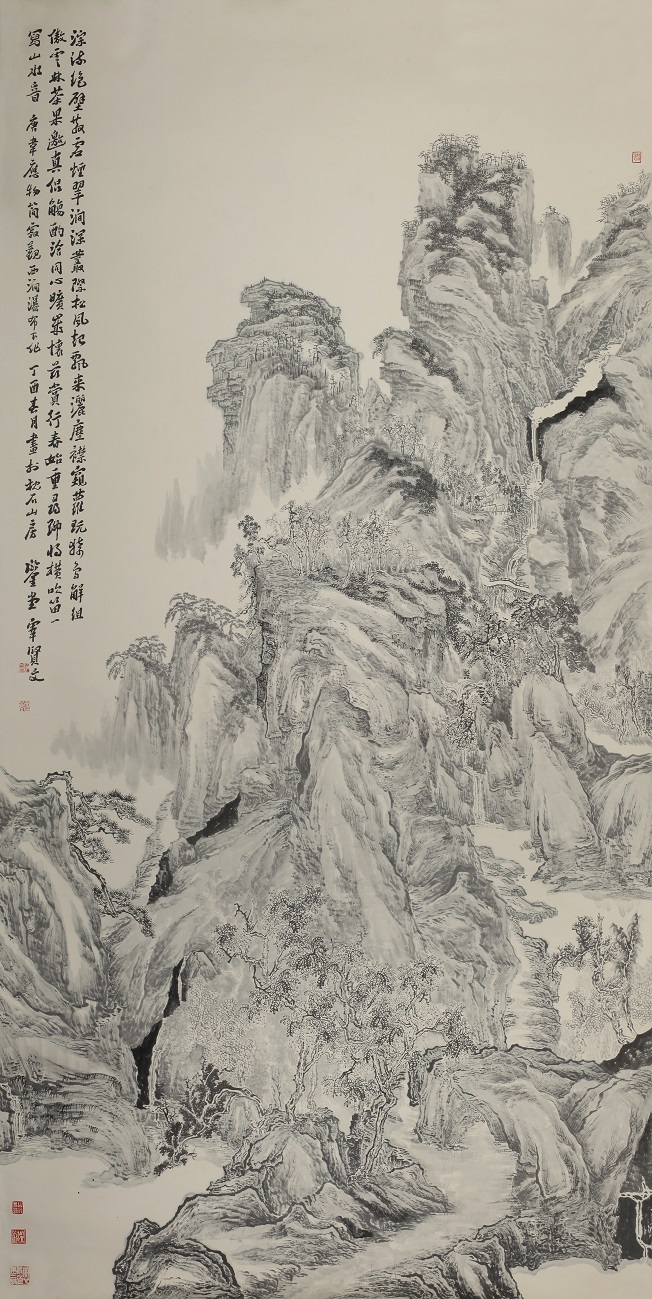 淙流絕壁散虛煙翠澗深叢際松風起飄來灑塵襟窺蘿玩猿鳥解組
傲雲林茶果邀真侶觴酌洽同心曠歲懷茲賞行春始重尋聊將橫吹笛一
寫山水音 唐韋應物簡寂觀西澗瀑布下作 丁酉春月畫於枕石山房 堂 覃賢文